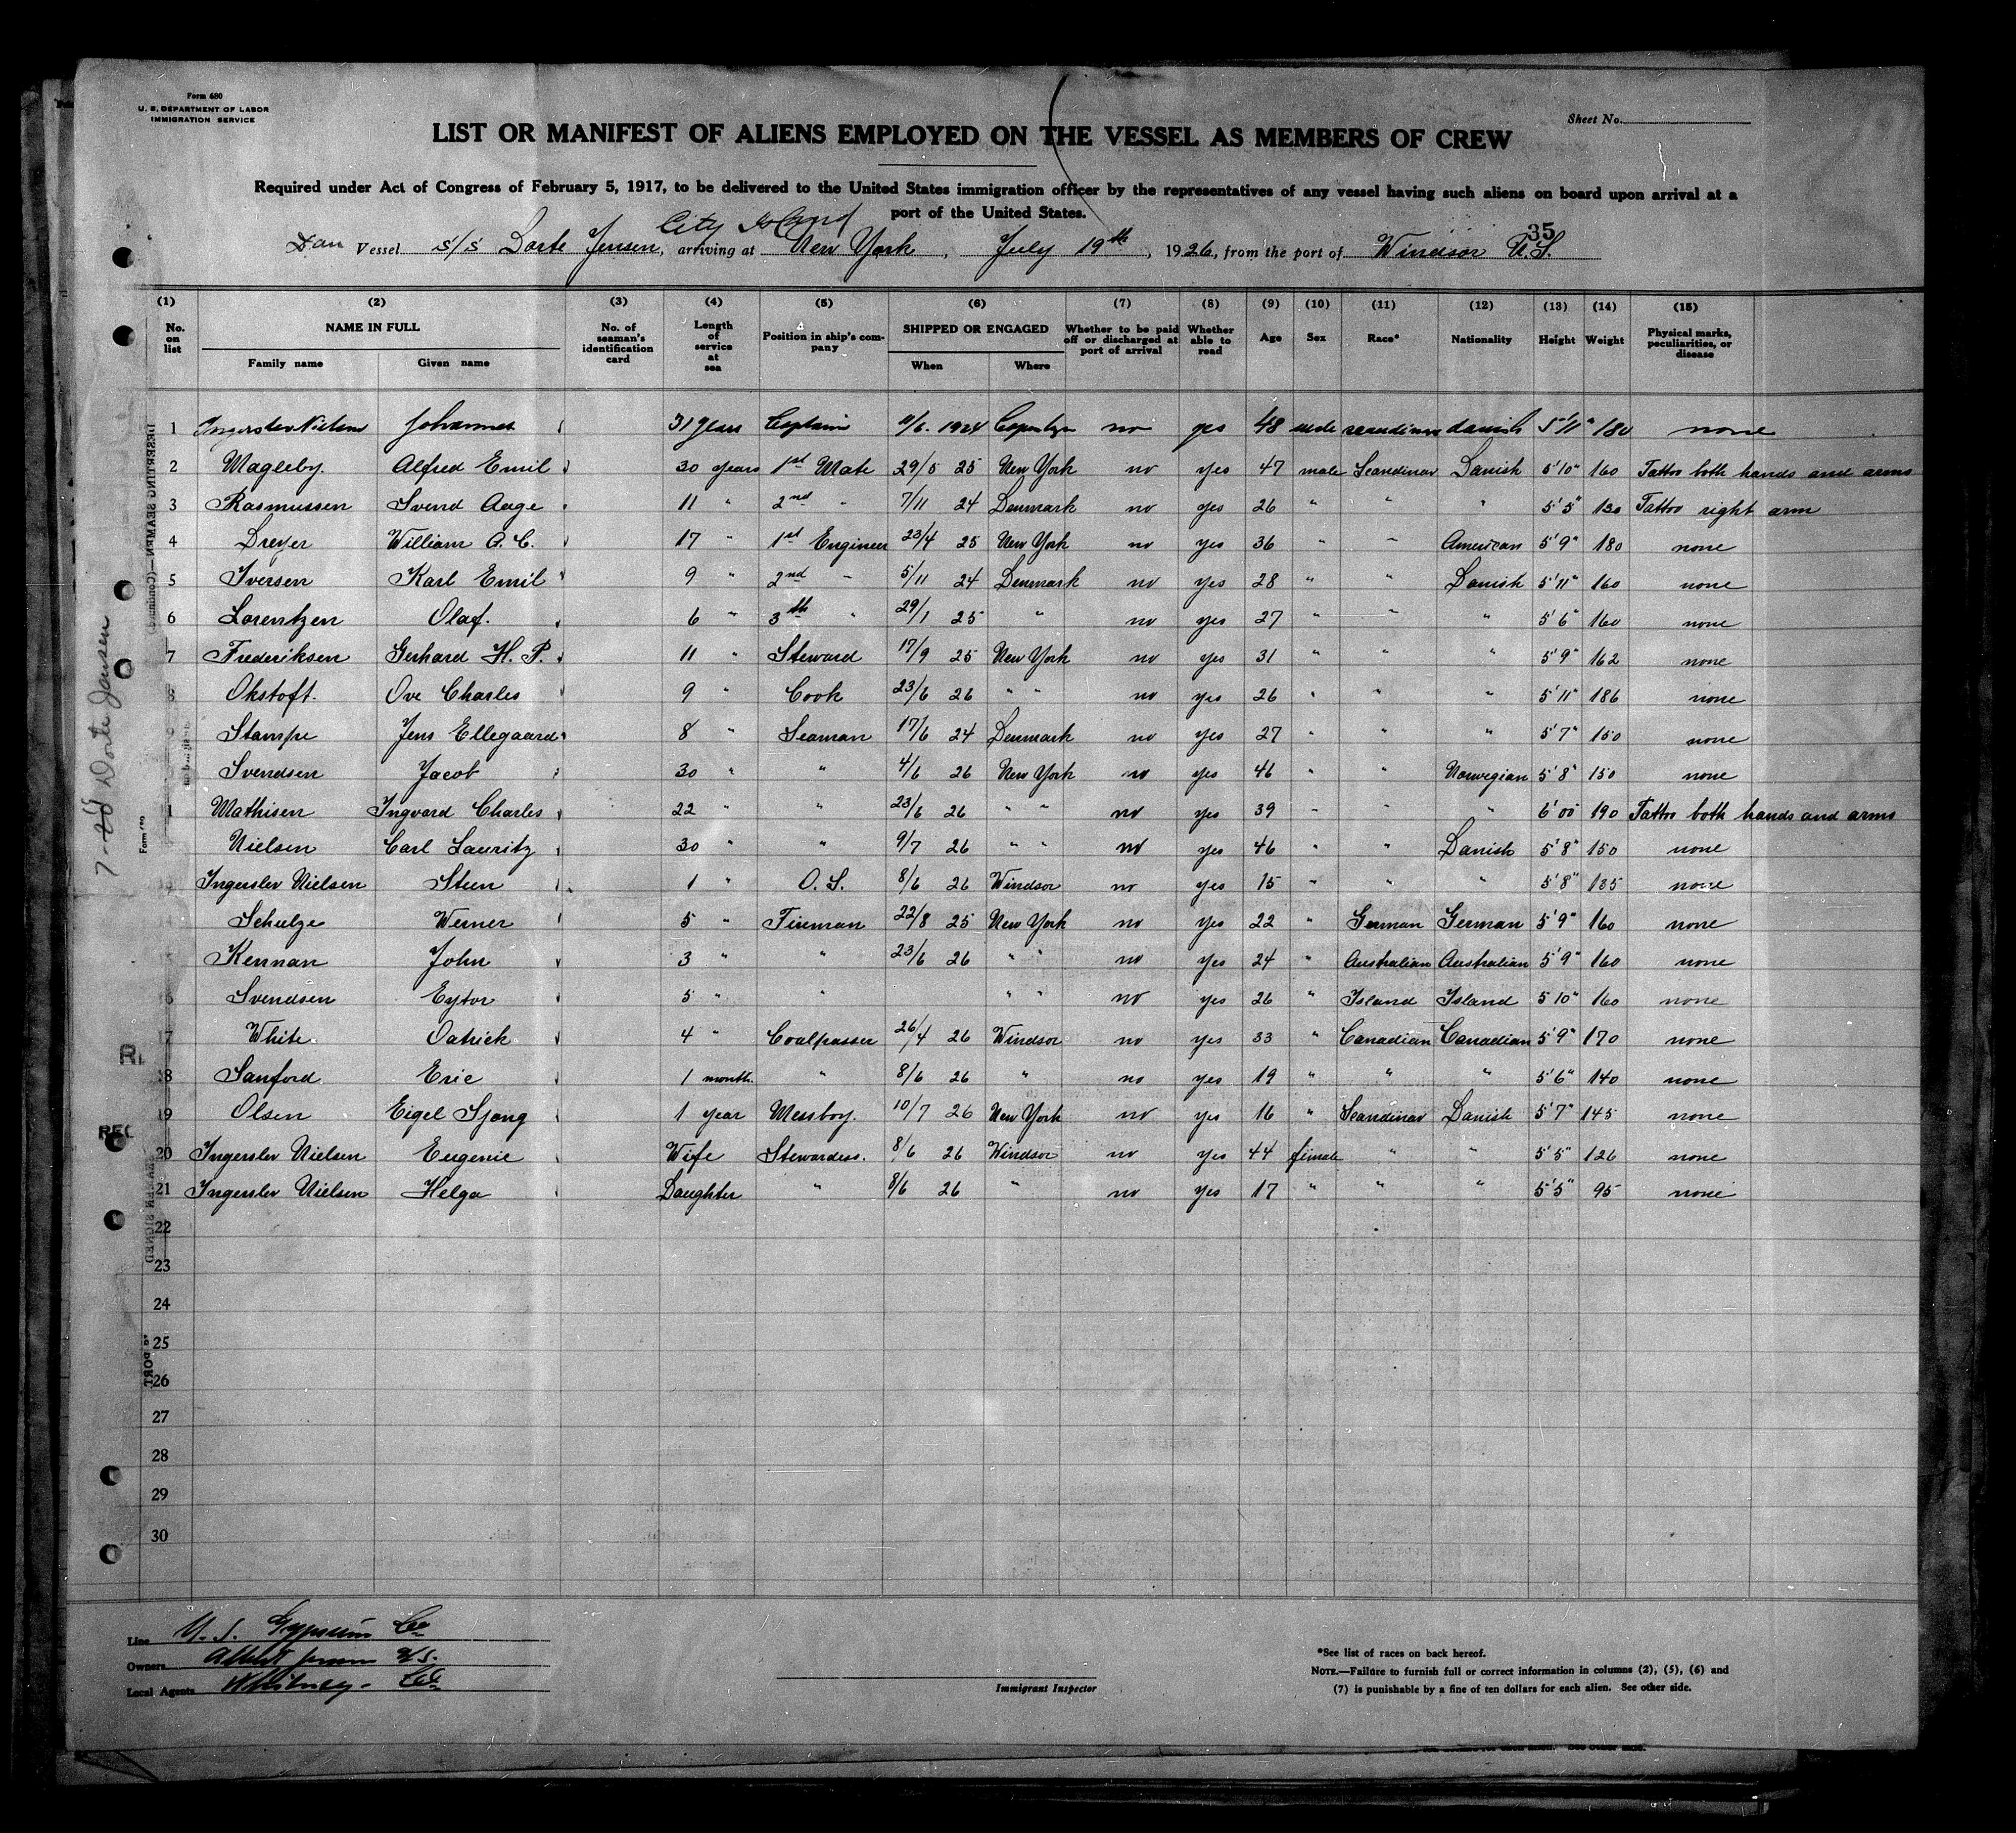 Form 680
U. S. DEPARTMENT OF LABOR
IMMIGRATION SERVICE
Sheet No.
LIST OR MANIFEST OF ALIENS EMPLOYED ON THE VESSEL AS MEMBERS OF CREW
Required under Act of Congress of February 5, 1917, to be delivered to the United States immigration officer by the representatives of any vessel having such aliens on board upon arrival at a
port of the United States.
City Island
35
Dan Vessel s/s Dorte Jensen, arriving at New York, July 19th, 1926, from the port of Windsor N.S.
(1) (2) (3) (4) (5) (6) (7) (8) (9) (10) (11) (12) (13) (14) (15)
No. on list NAME IN FULL No. of seaman's identification card Length of service at sea Position in ship's company SHIPPED OR ENGAGED Whether to be paid off or discharged at port of arrival Whether able to read Age Sex Race* Nationality Height Weight Physical marks, peculiarities, or disease
Family name Given name When Where
1 Ingerslev Nielsen Johannes 31 years Captain 11/6. 1924 Copenhgn no yes 48 male scandinav danish 5'11" 180 none
2 Magleby. Alfred Emil 30 years 1st Mate 29/5 25 New York no yes 47 male Scandinav Danish 5'10" 160 Tattoo both hands and arms
3 Rasmussen Svend Aage 11 " 2nd " 7/11 24 Denmark no yes 26 " " " 5'5" 130 Tattoo right arm
4 Dreyer William A. C. 17 " 1st Engineer 23/4 25 New York no yes 36 " " American 5'9" 180 none
5 Iversen Karl Emil 9 " 2nd " 5/11 24 Denmark no yes 28 " " Danish 5'11" 160 none
6 Lorentzen Olaf. 6 " 3th " 29/1 25 " no yes 27 " " " 5'6" 160 none
7 Frederiksen Gerhard H. P. 11 " Steward 17/9 25 New York no yes 31 " " " 5'9" 162 none
8 Okstoft. Ove Charles 9 " Cook 23/6 26 " " no yes 26 " " " 5'11" 186 none
9 Stampe Jens Ellegaard 8 " Seaman 17/6 24 Denmark no yes 27 " " " 5'7" 150 none
Svendsen Jacob 30 " " 4/6 26 New York no yes 46 " " Norwegian 5'8" 150 none
1 Mathisen Ingvard Charles 22 " " 23/6 26 " " no yes 39 " " " 6'00 190 Tattoo both hands and arms
Nielsen Carl Lauritz 30 " " 9/7 26 " " no yes 46 " " Danish 5'8" 150 none
13 Ingerslev Nielsen Steen 1 " O. S. 8/6 26 Windsor no yes 15 " " " 5'8" 135 none
14 Schulze Werner 5 " Fireman 22/8 25 New York no yes 22 " German German 5'9" 160 none
15 Kennan John 3 " " 23/6 26 " " no yes 24 " Australian Australian 5'9" 160 none
16 Svendsen Eytor 5 " " " " no yes 26 " Island Island 5 10" 160 none
17 White Oatrick 4 " Coalpasser 26/4 26 Windsor no yes 33 " Canadian Canadian 5'9" 170 none
18 Sanford Eric 1 month. " 8/6 26 " no yes 19 " " " 5'6" 140 none
19 Olsen Eigel Sjong 1 year Messboy. 10/7 26 New York no yes 16 " Scandinav Danish 5'7" 145 none
20 Ingerslev Nielsen Eugenie Wife Stewardess. 8/6 26 Windsor no yes 44 female " " 5'5" 126 none
21 Ingerslev Nielsen Helga Daughter " 8/6 26 " no yes 17 " " " 5'5" 95 none
22
23
24
25
26
27
28
29
30
Dorte Jensen
Line U. S. Gypsum Co
Owners Albert Jensen
Local Agents Whitney Co
Immigrant Inspector
*See list of races on back hereof.
NOTE.—Failure to furnish full or correct information in columns (2), (5), (6) and
(7) is punishable by a fine of ten dollars for each alien. See other side.